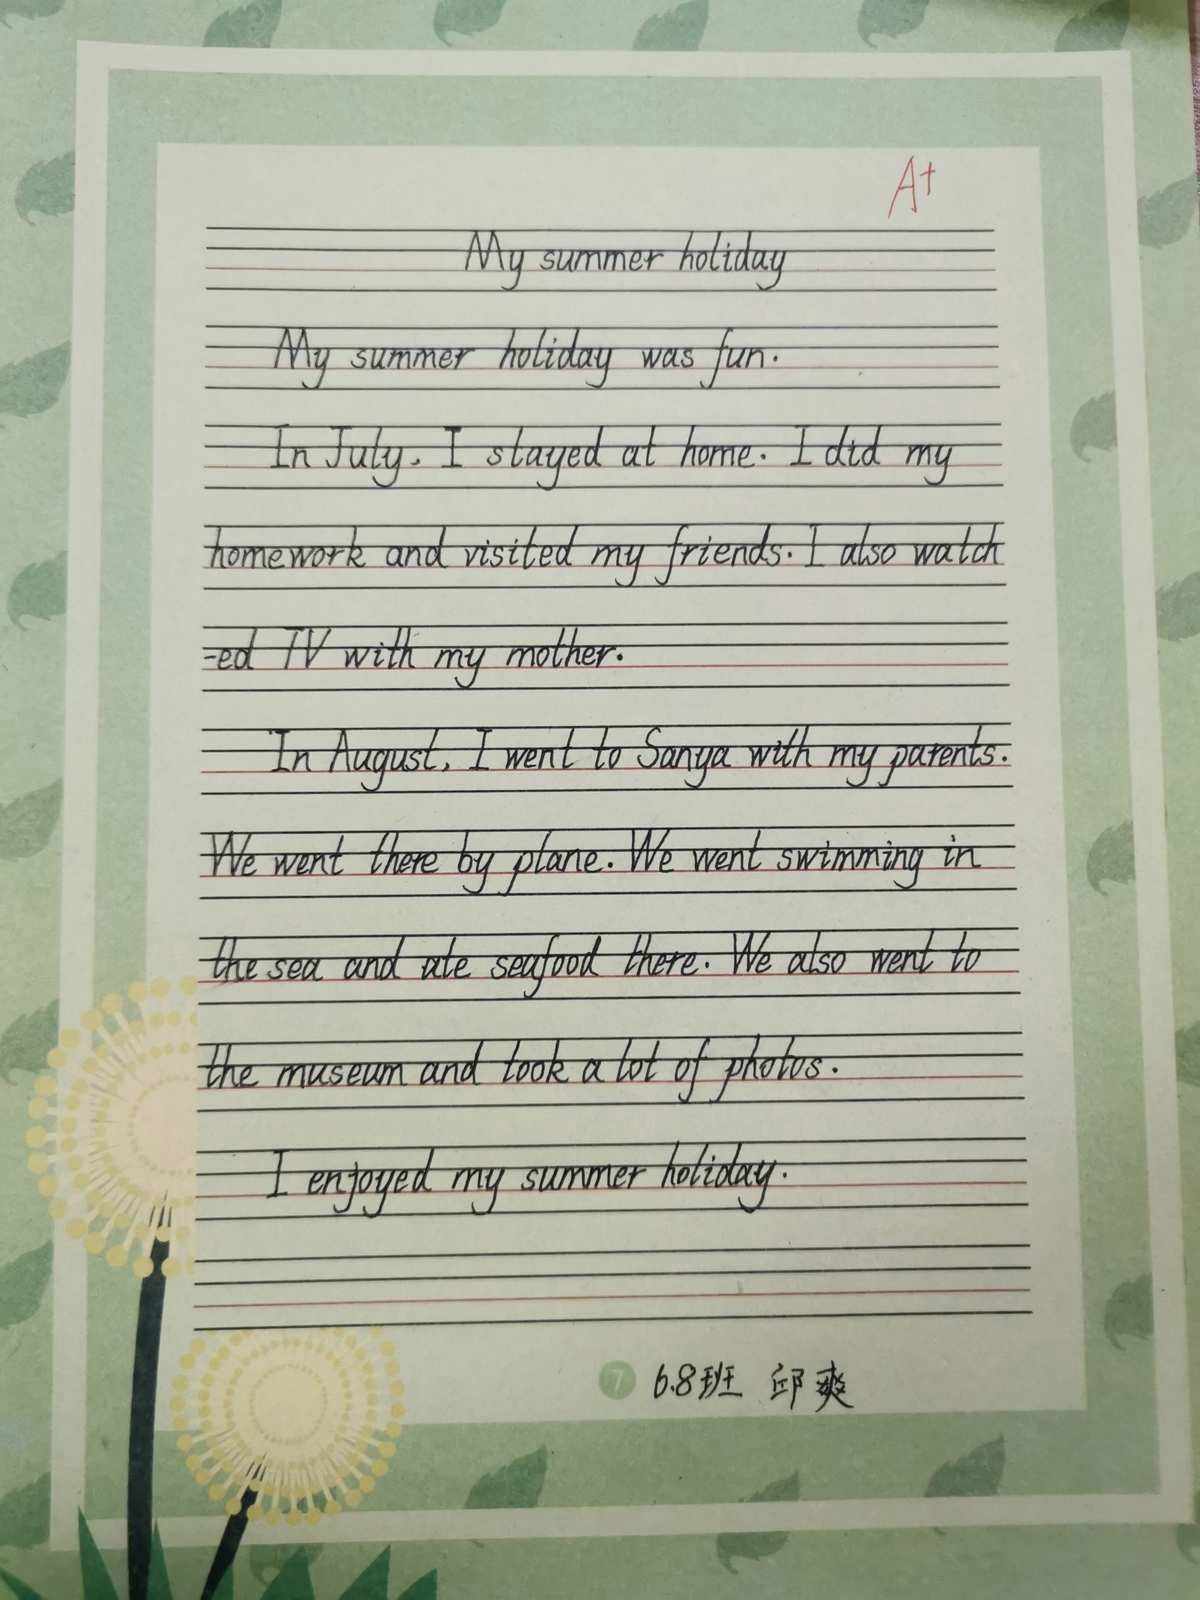 A+
My summer holiday
My summer holiday was fun.
In July, I stayed at home. I did my
homework and visited my friends. I also watch
-ed TV with my mother.
In August, I went to Sanya with my parents.
We went there by plane. We went swimming in
the sea and ate seafood there. We also went to
the museum and took a lot of photos.
I enjoyed my summer holiday.
7 6.8班 邱爽